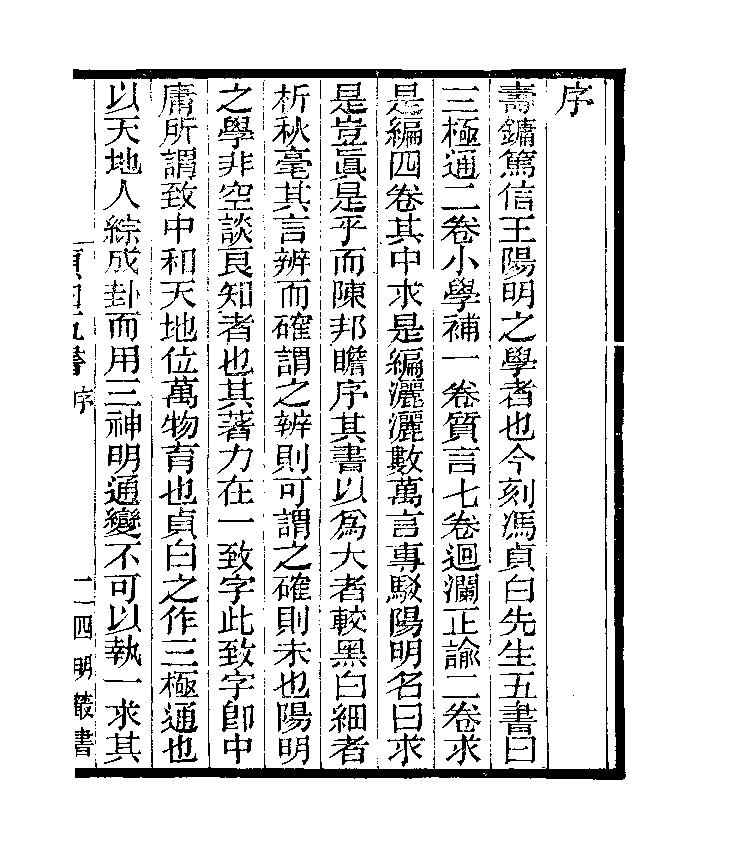 序
壽鏞篤信王陽明之學者也今刻馮貞白先生五書曰
三極通二卷小學補一卷質言七卷迴瀾正諭二卷求
是編四卷其中求是編灑灑數萬言專駁陽明名曰求
是豈眞是乎而陳邦瞻序其書以爲大者較黑白細者
析秋毫其言辨而確謂之辨則可謂之確則未也陽明
之學非空談良知者也其著力在一致字此致字卽中
庸所謂致中和天地位萬物育也貞白之作三極通也
以天地人綜成卦而用三神明通變不可以執一求其
貞白五書 序 一 四明叢書